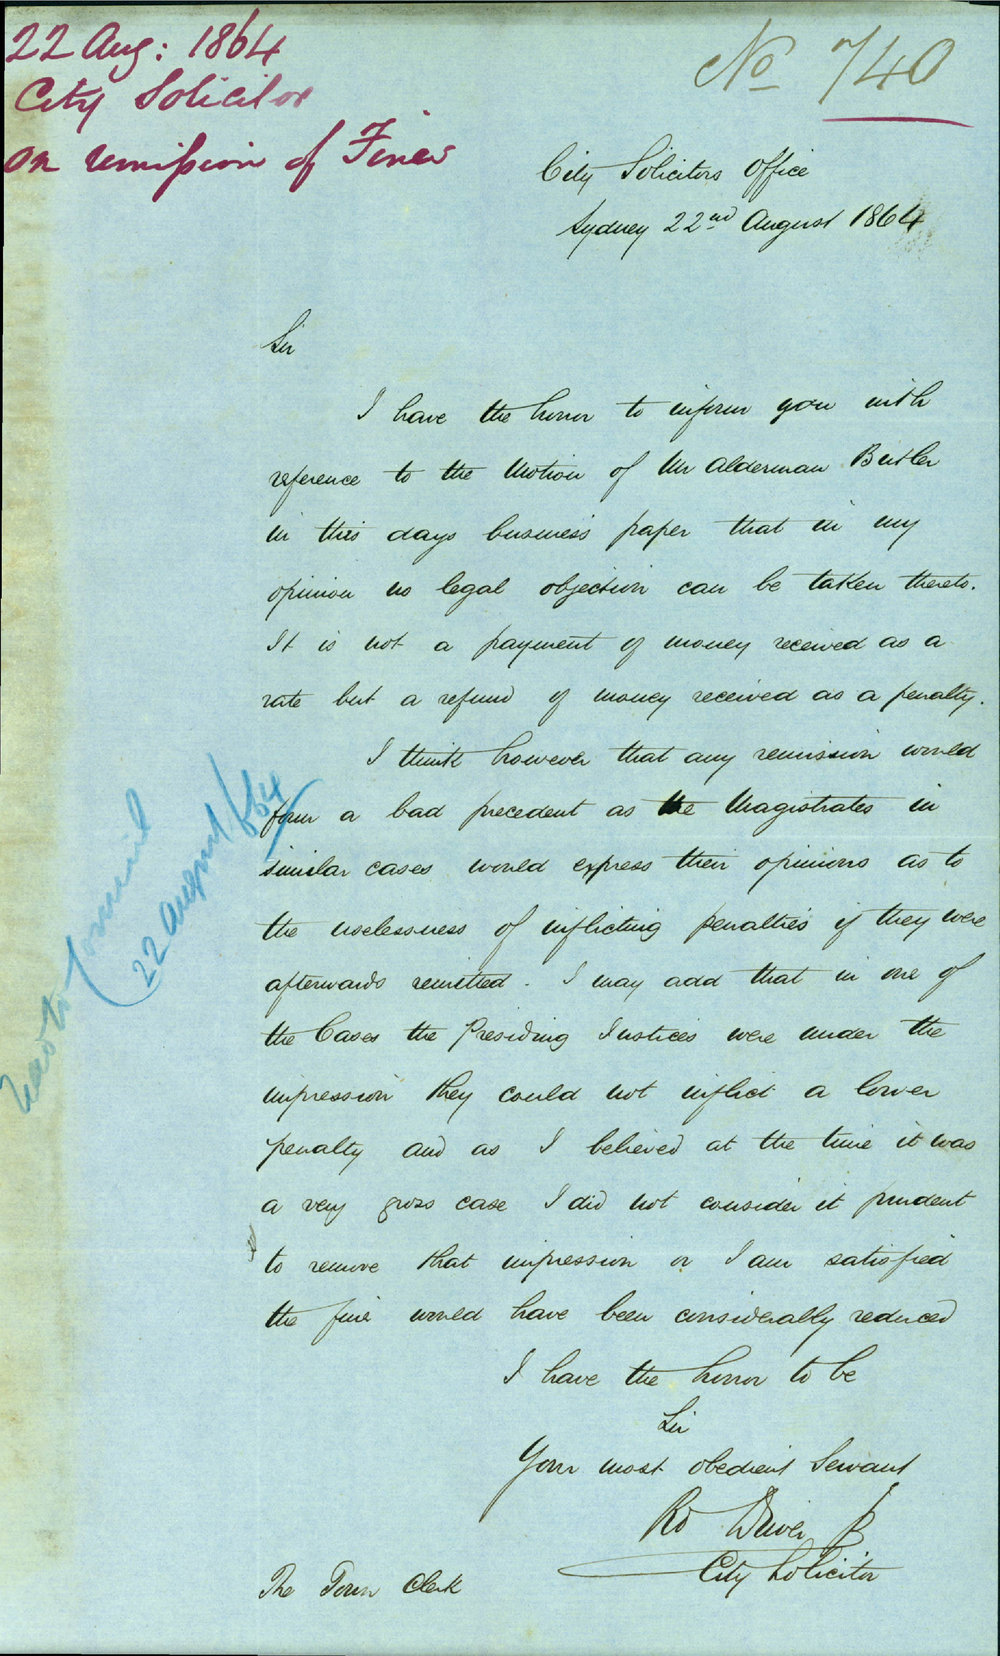 22 Aug: 1864
City Solicitor
on remission of Fines
No 740
City Solicitors Office
Sydney 22nd August 1864
Sir
I have the honor to inform you with
reference to the Motion of Mr Alderman Butler
in this days business paper that in my
opinion no legal objection can be taken thereto.
It is not a payment of money received as a
rate but a refund of money received as a penalty.
I think however that any remission would
form a bad precedent as the Magistrates in
similar cases would express their opinions as to
the uselessness of inflicting penalties if they were
afterwards remitted. I may add that in one of
the Cases the Presiding Justices were under the
impression they could not inflict a lower
penalty and as I believed at the time it was
a very gross case I did not consider it prudent
to remove that impression or I am satisfied
the fine would have been considerably reduced
I have the honor to be
Sir
Your most obedient Servant
Rd Driver Jr
City Solicitor
The Town Clerk
to Council
22 August 1864